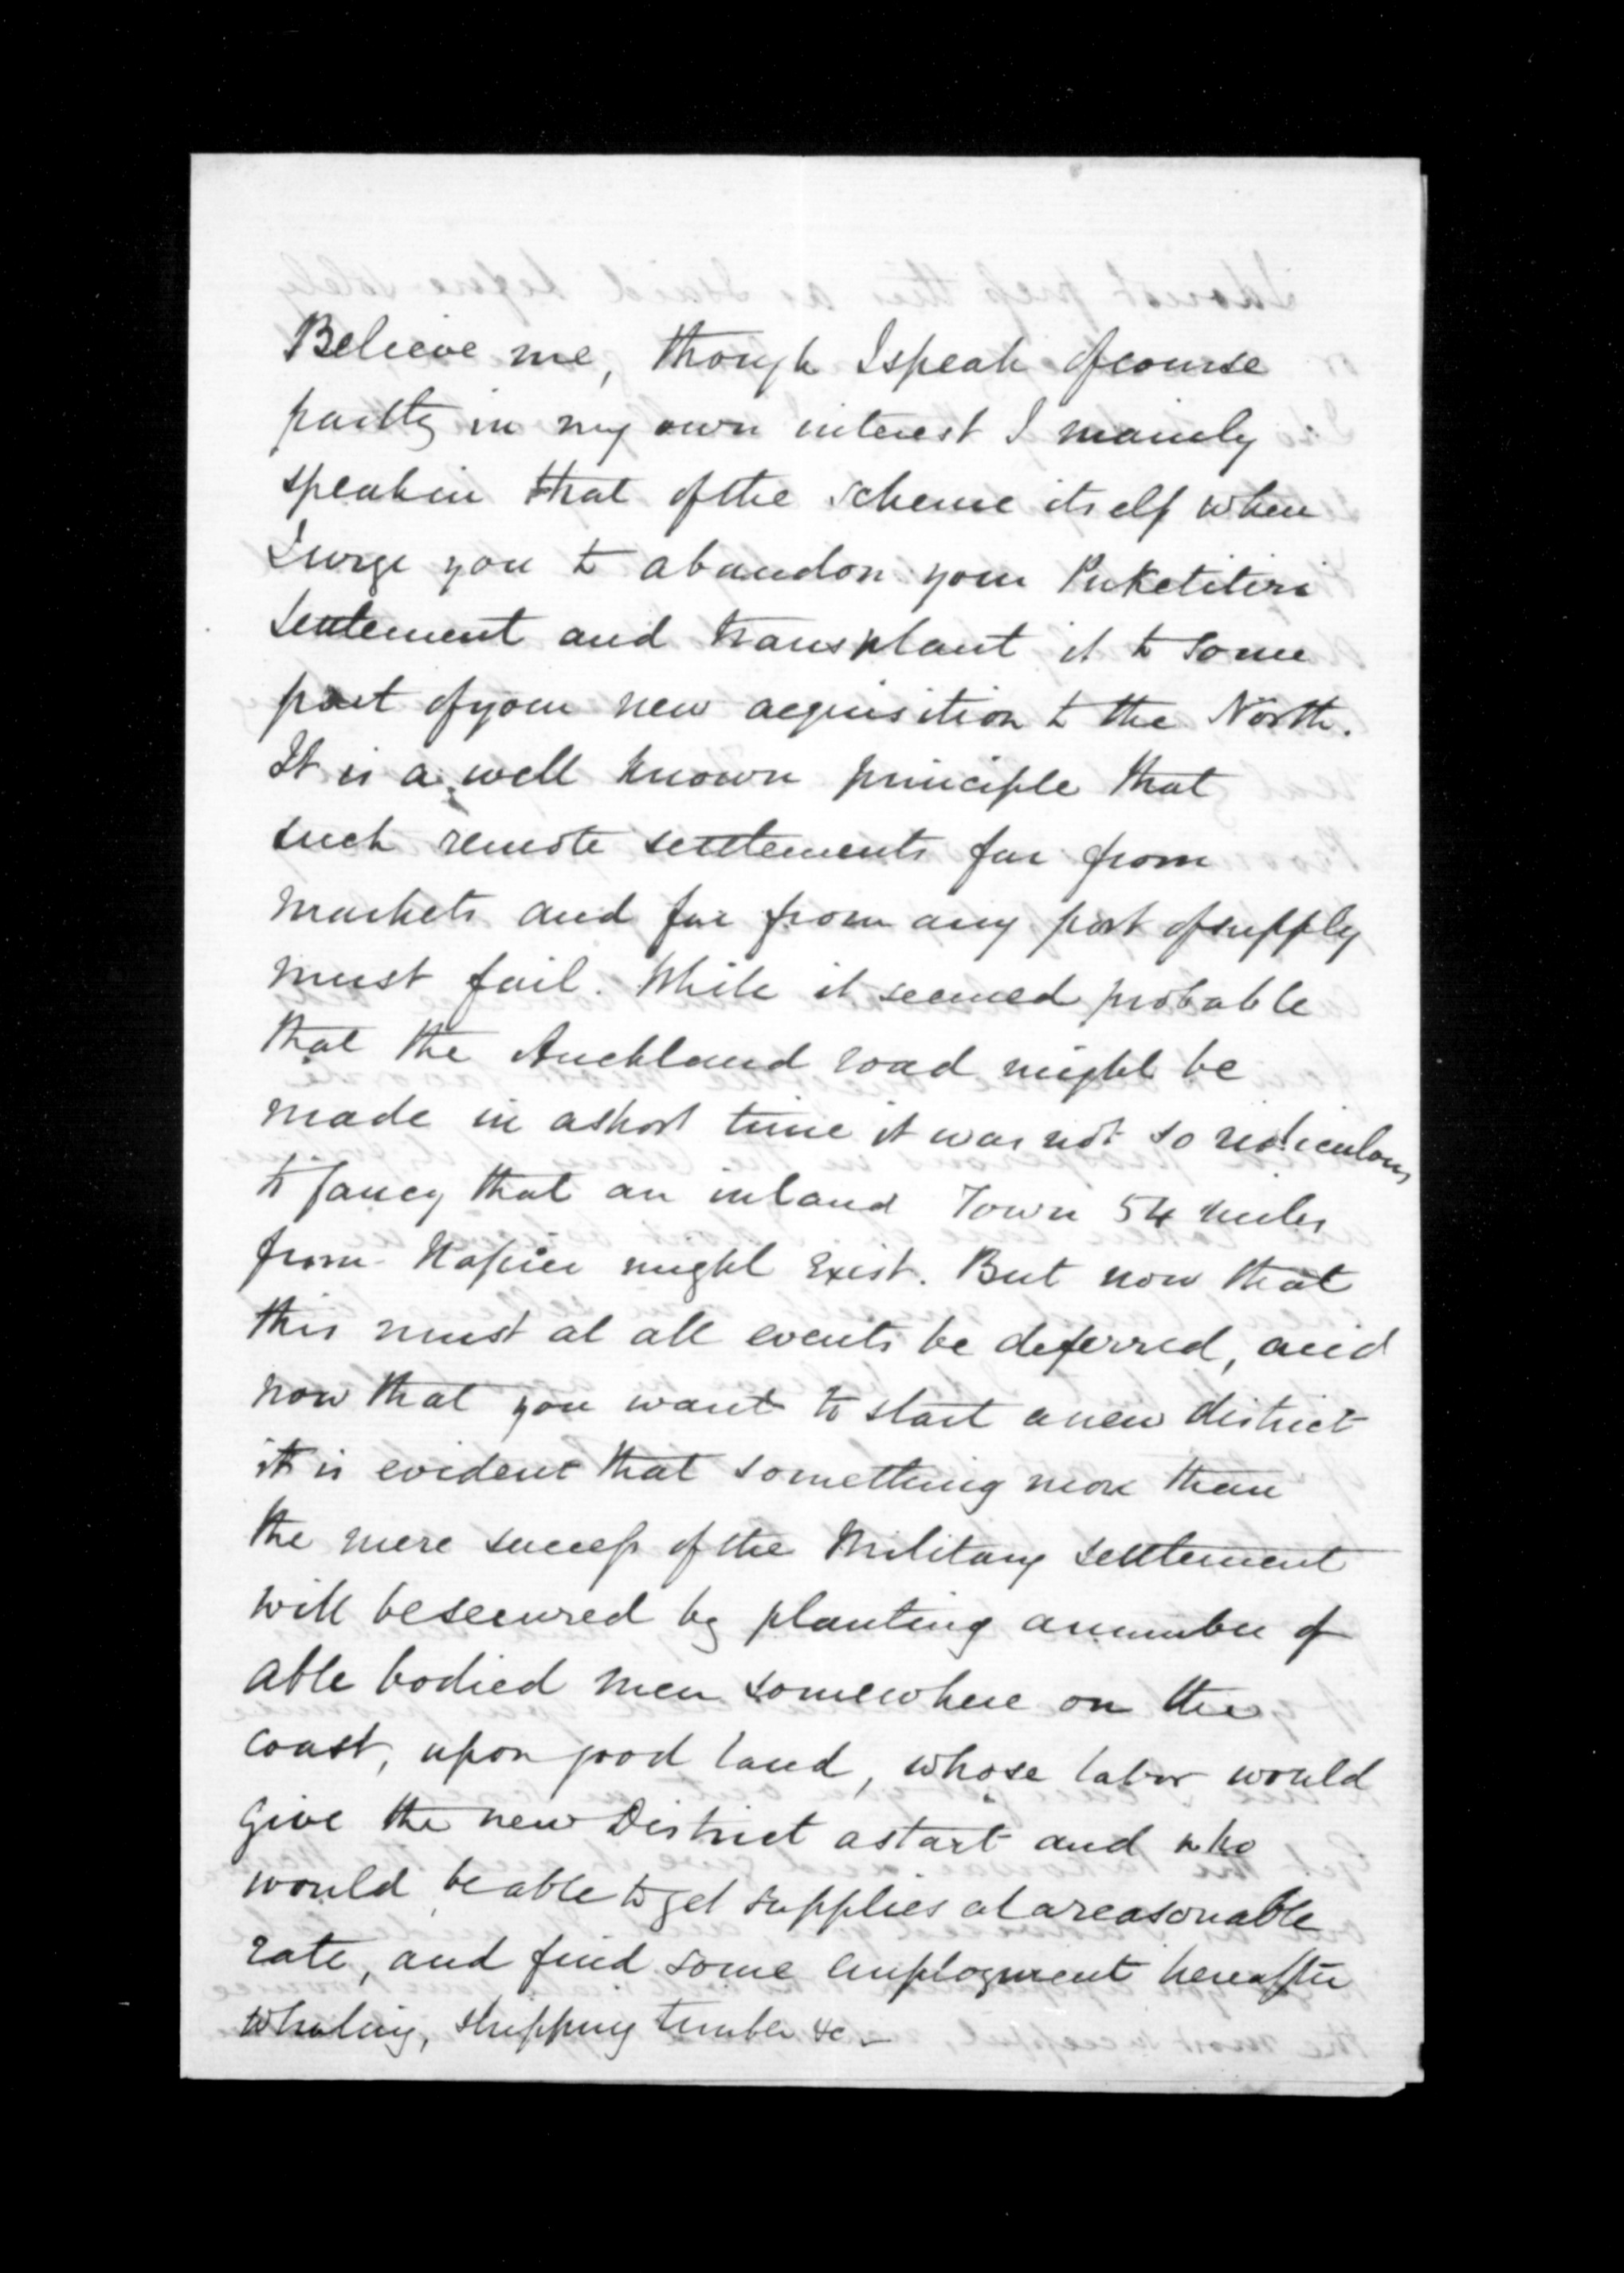 Believe me, though I speak of course
partly in my own interest I mainly
speak in that of the scheme itself when
I urge you to abandon your Puketitiri
settlement and transplant it to some
part of your new acquisition to the North.
It is a well known principle that
such remote settlements far from
markets and far from any port of supply
must fail. While it seemed probable
that the Auckland road might be
made in a short time it was not so ridiculous
to fancy that an inland Town 54 miles
from Napier might exist. But now that
this must at all events be deferred, and
now that you want to start a new district
it is evident that something more than
the mere success of the Military settlement
will be secured by planting a number of
able bodied men somewhere on the
coast, upon good land, whose labor would
give the new District a start and who
would be able to get supplies at a reasonable
rate, and find some employment hereafter
whaling, shipping timber &c _